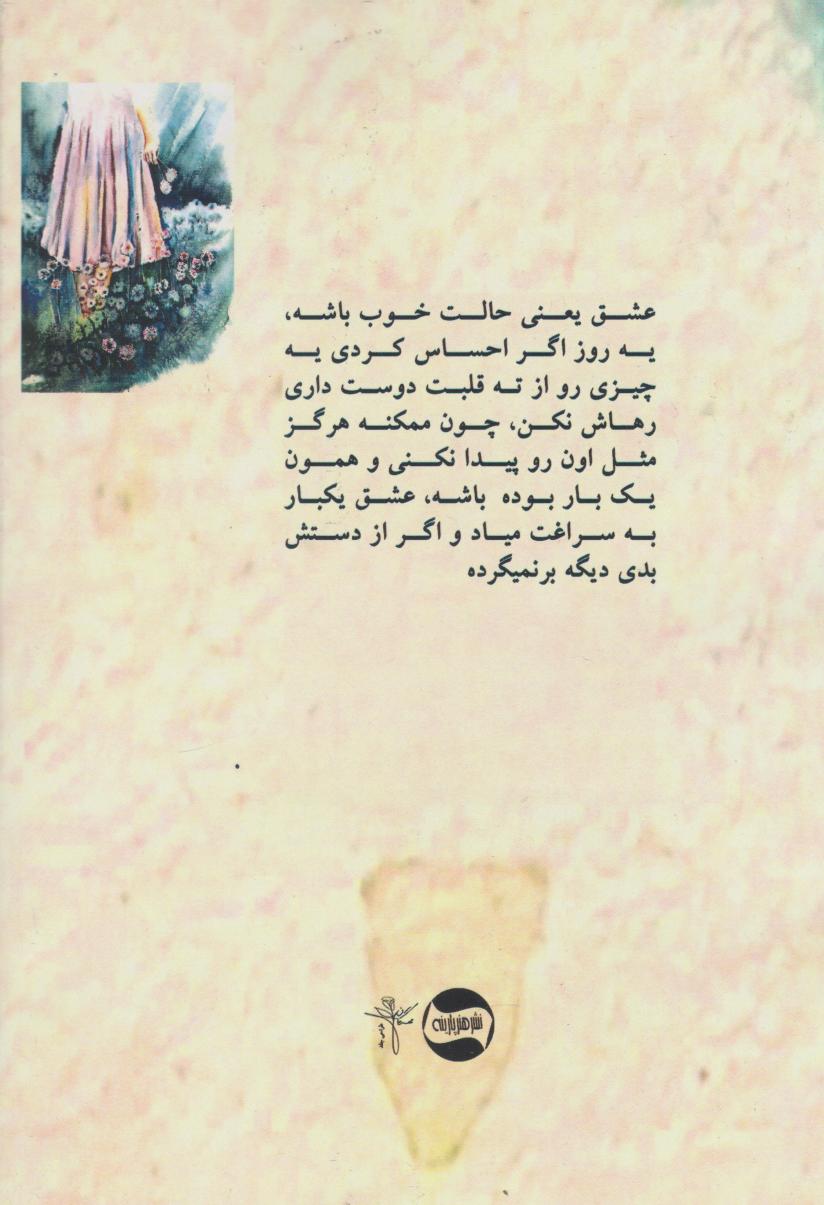 عشق یعنی حالت خوب باشه،
یه روز اگر احساس کردی یه
چیزی رو از ته قلبت دوست داری
رهاش نکن، چون ممکنه هرگز
مثل اون رو پیدا نکنی و همون
یک بار بوده باشه، عشق یکبار
به سراغت میاد و اگر از دستش
بدی دیگه برنمیگرده
نشر هنر پارینه
طراحی جلد